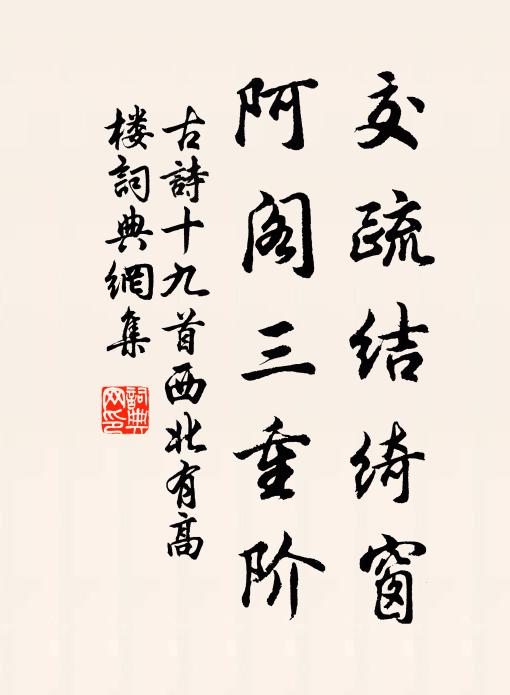 交疏结绮窗
阿阁三重阶
古詩十九首西北有高
楼詞典網集
詞典
网印